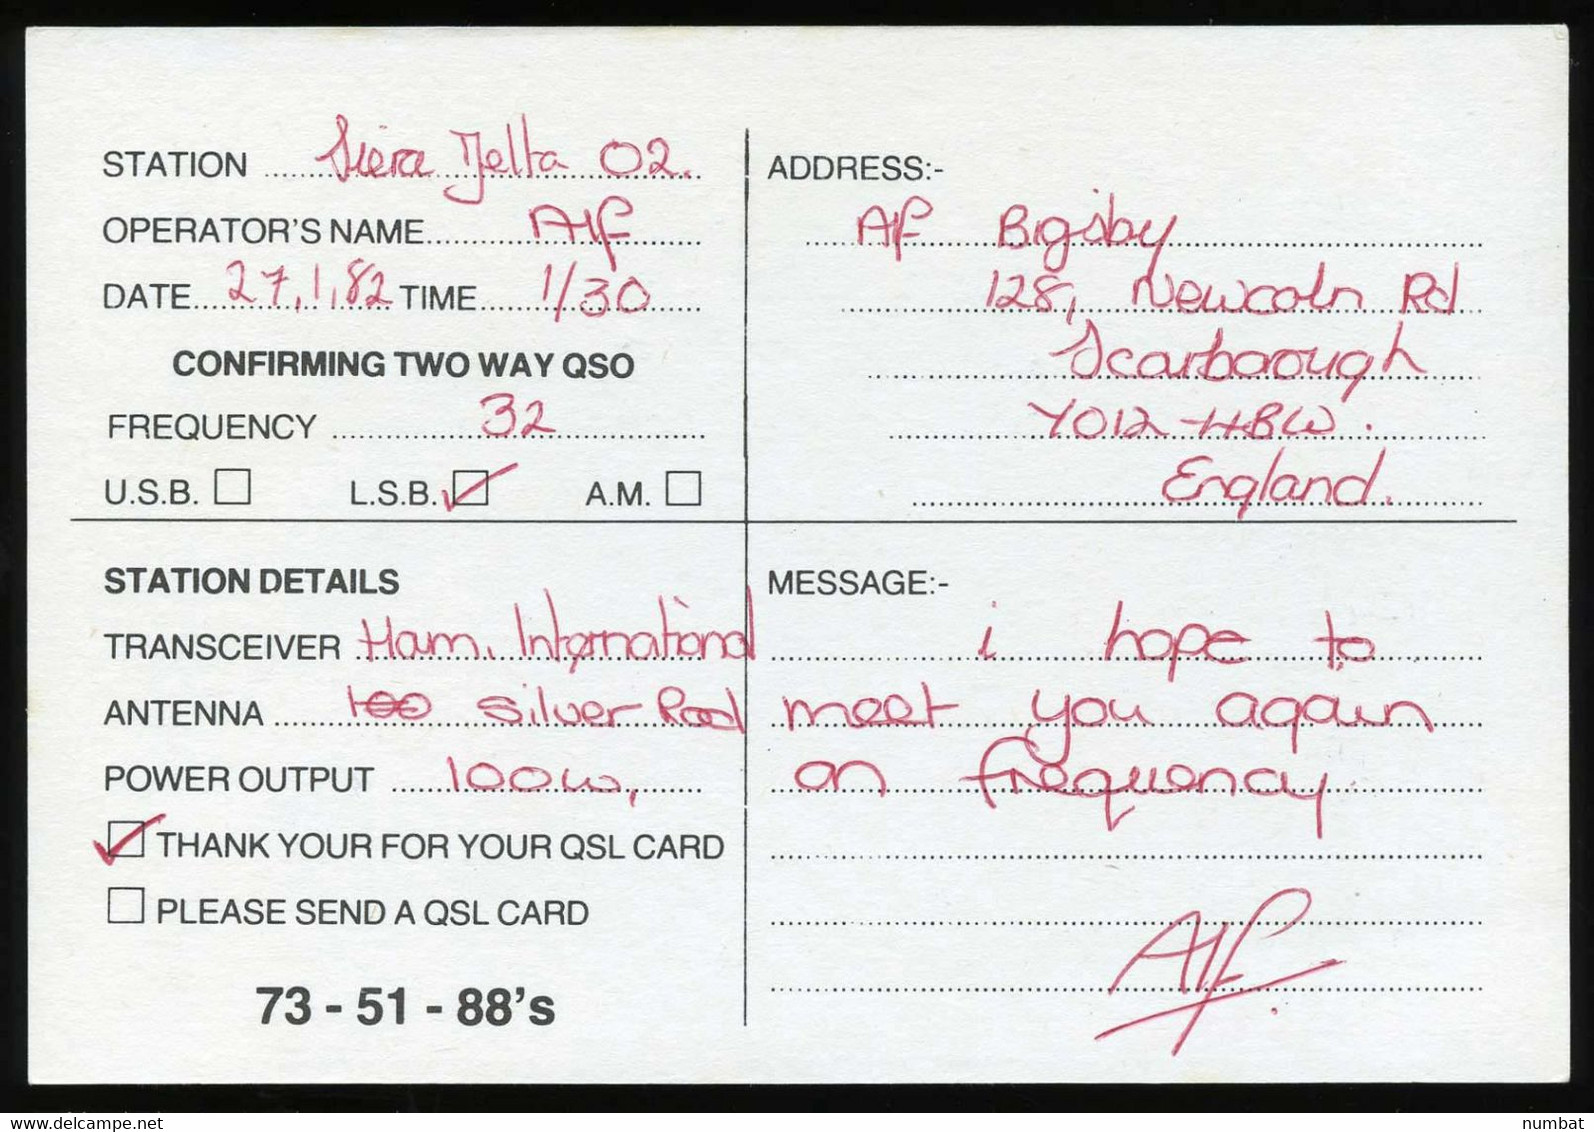 STATION Siera Delta 02.
OPERATOR'S NAME Alf
DATE 27,1,82 TIME 1/30
CONFIRMING TWO WAY QSO
FREQUENCY 32
U.S.B. L.S.B. A.M.
STATION DETAILS
TRANSCEIVER Ham. International
ANTENNA 100 Silver Rod
POWER OUTPUT 100w,
THANK YOUR FOR YOUR QSL CARD
PLEASE SEND A QSL CARD
73 - 51 - 88's
ADDRESS:-
Alf Bigsby
128, Newcoln Rd
Scarborough
YO12-HBW.
England.
MESSAGE:-
i hope to
meet you again
on frequency
Alf.
delcampe.net
numbat